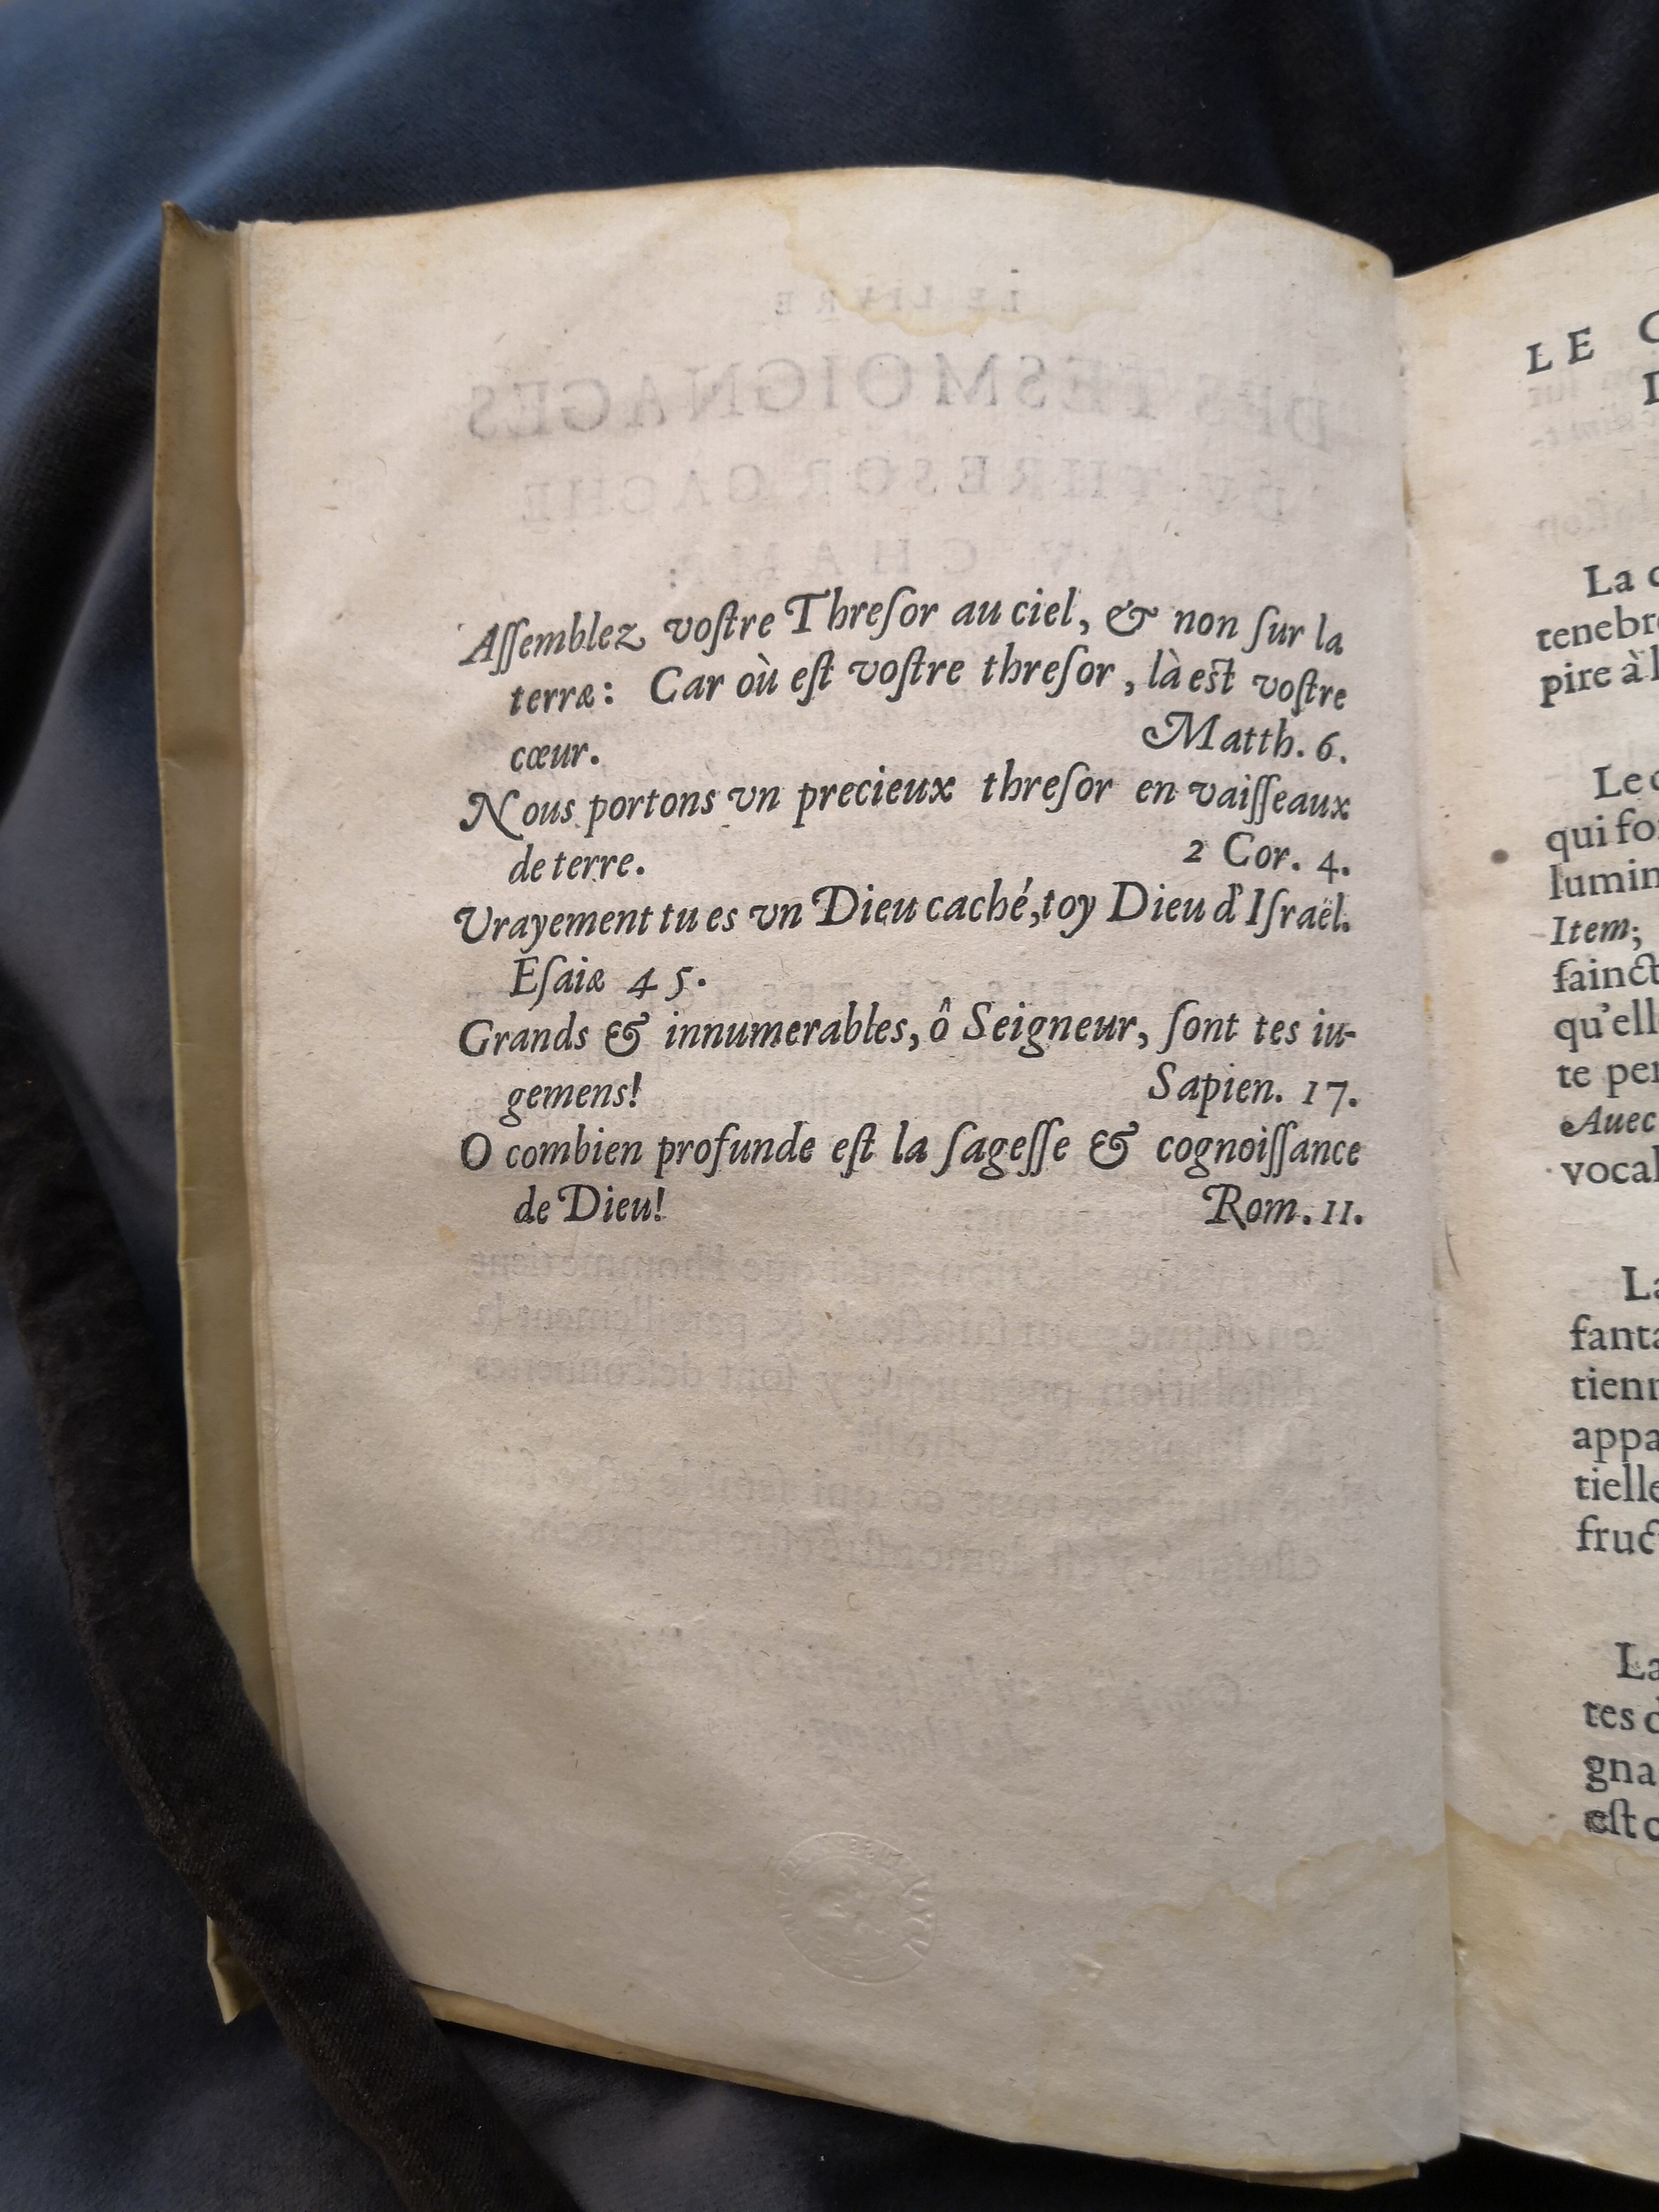 Aſſemblez voſtre Threſor au ciel, & non ſur la
terræ: Car où eſt voſtre threſor, là eſt voſtre
cœur. Matth. 6.
Nous portons vn precieux threſor en vaiſſeaux
de terre. 2 Cor. 4.
Vrayement tu es vn Dieu caché, toy Dieu d'Iſraël.
Eſaiæ 45.
Grands & innumerables, ô Seigneur, ſont tes iu-
gemens! Sapien. 17.
O combien profunde eſt la ſageſſe & cognoiſſance
de Dieu! Rom. 11.
LE
La
tenebr
pire à l
Le
qui fo
lumin
Item;
fainct
qu'ell
te per
Auec
vocal
La
fanta
tienn
appa
tielle
fruct
La
tes
gna
eſt